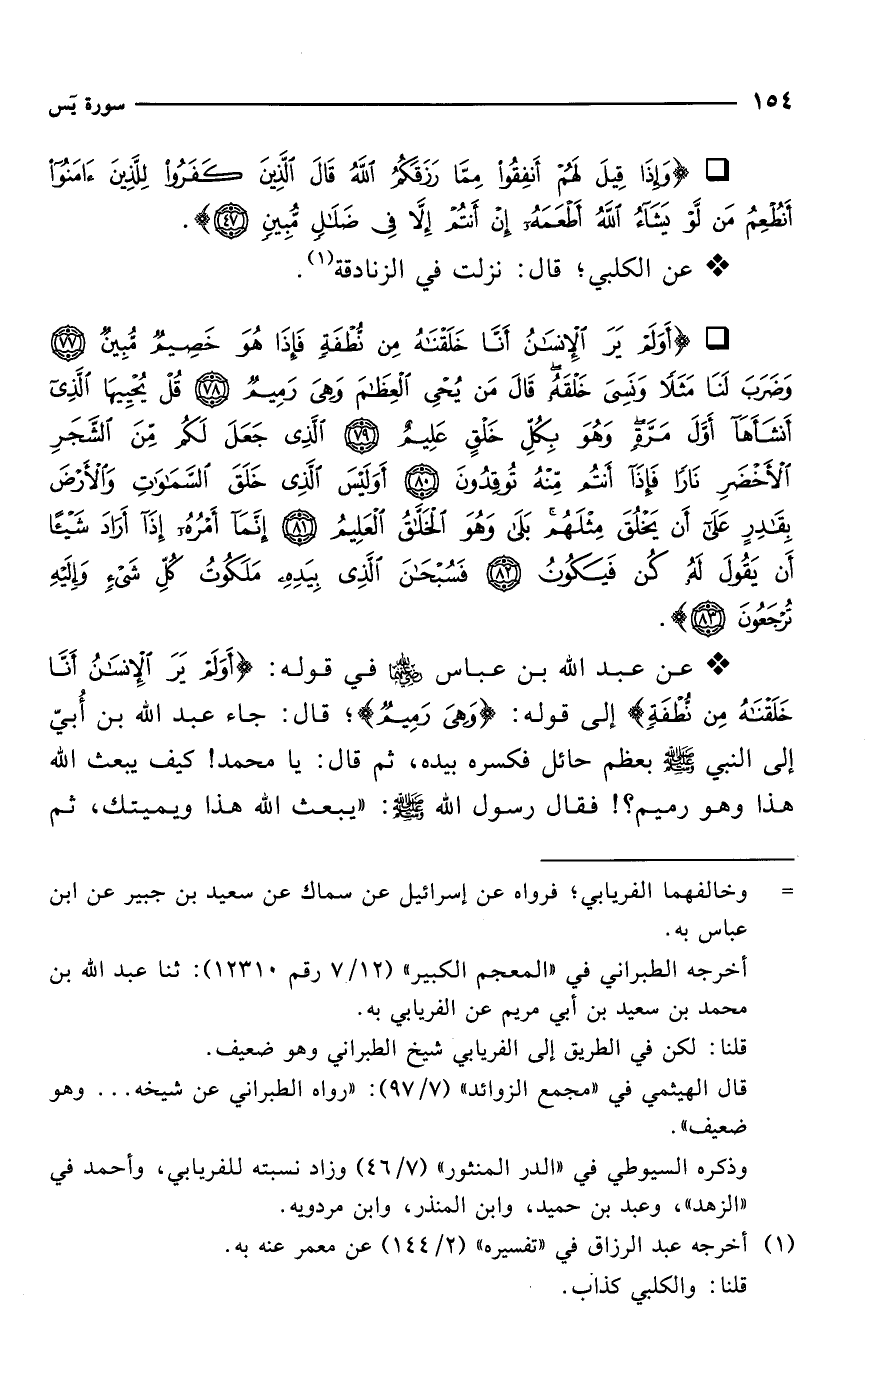 ١٥٤ سورة يٓس
❑ ﴿وَإِذَا قِيلَ لَهُمْ أَنفِقُوا۟ مِمَّا رَزَقَكُمُ ٱللَّهُ قَالَ ٱلَّذِينَ كَفَرُوا۟ لِلَّذِينَ ءَامَنُوٓا۟
أَنُطْعِمُ مَن لَّوْ يَشَآءُ ٱللَّهُ أَطْعَمَهُۥٓ إِنْ أَنتُمْ إِلَّا فِى ضَلَـٰلٍ مُّبِينٍ ﴿٤٧﴾﴾.
❖ عن الكلبي؛ قال: نزلت في الزنادقة(١).
❑ ﴿أَوَلَمْ يَرَ ٱلْإِنسَـٰنُ أَنَّا خَلَقْنَـٰهُ مِن نُّطْفَةٍ فَإِذَا هُوَ خَصِيمٌ مُّبِينٌ ﴿٧٧﴾
وَضَرَبَ لَنَا مَثَلًا وَنَسِىَ خَلْقَهُۥ ۖ قَالَ مَن يُحْىِ ٱلْعِظَـٰمَ وَهِىَ رَمِيمٌ ﴿٧٨﴾ قُلْ يُحْيِيهَا ٱلَّذِىٓ
أَنشَأَهَآ أَوَّلَ مَرَّةٍ ۖ وَهُوَ بِكُلِّ خَلْقٍ عَلِيمٌ ﴿٧٩﴾ ٱلَّذِى جَعَلَ لَكُم مِّنَ ٱلشَّجَرِ
ٱلْأَخْضَرِ نَارًا فَإِذَآ أَنتُم مِّنْهُ تُوقِدُونَ ﴿٨٠﴾ أَوَلَيْسَ ٱلَّذِى خَلَقَ ٱلسَّمَـٰوَٰتِ وَٱلْأَرْضَ
بِقَـٰدِرٍ عَلَىٰٓ أَن يَخْلُقَ مِثْلَهُم ۚ بَلَىٰ وَهُوَ ٱلْخَلَّـٰقُ ٱلْعَلِيمُ ﴿٨١﴾ إِنَّمَآ أَمْرُهُۥٓ إِذَآ أَرَادَ شَيْـًٔا
أَن يَقُولَ لَهُۥ كُن فَيَكُونُ ﴿٨٢﴾ فَسُبْحَـٰنَ ٱلَّذِى بِيَدِهِۦ مَلَكُوتُ كُلِّ شَىْءٍ وَإِلَيْهِ
تُرْجَعُونَ ﴿٨٣﴾﴾.
❖ عن عبد الله بن عباس رضي الله عنهما في قوله: ﴿أَوَلَمْ يَرَ ٱلْإِنسَـٰنُ أَنَّا
خَلَقْنَـٰهُ مِن نُّطْفَةٍ﴾ إلى قوله: ﴿وَهِىَ رَمِيمٌ﴾؛ قال: جاء عبد الله بن أُبيّ
إلى النبي ﷺ بعظم حائل فكسره بيده، ثم قال: يا محمد! كيف يبعث الله
هذا وهو رميم؟! فقال رسول الله ﷺ: «يبعث الله هذا ويميتك، ثم
= وخالفهما الفريابي؛ فرواه عن إسرائيل عن سماك عن سعيد بن جبير عن ابن
عباس به.
أخرجه الطبراني في «المعجم الكبير» (٧/١٢ رقم ١٢٣١٠): ثنا عبد الله بن
محمد بن سعيد بن أبي مريم عن الفريابي به.
قلنا: لكن في الطريق إلى الفريابي شيخ الطبراني وهو ضعيف.
قال الهيثمي في «مجمع الزوائد» (٩٧/٧): «رواه الطبراني عن شيخه... وهو
ضعيف».
وذكره السيوطي في «الدر المنثور» (٤٦/٧) وزاد نسبته للفريابي، وأحمد في
«الزهد»، وعبد بن حميد، وابن المنذر، وابن مردويه.
(١) أخرجه عبد الرزاق في «تفسيره» (١٤٤/٢) عن معمر عنه به.
قلنا: والكلبي كذاب.